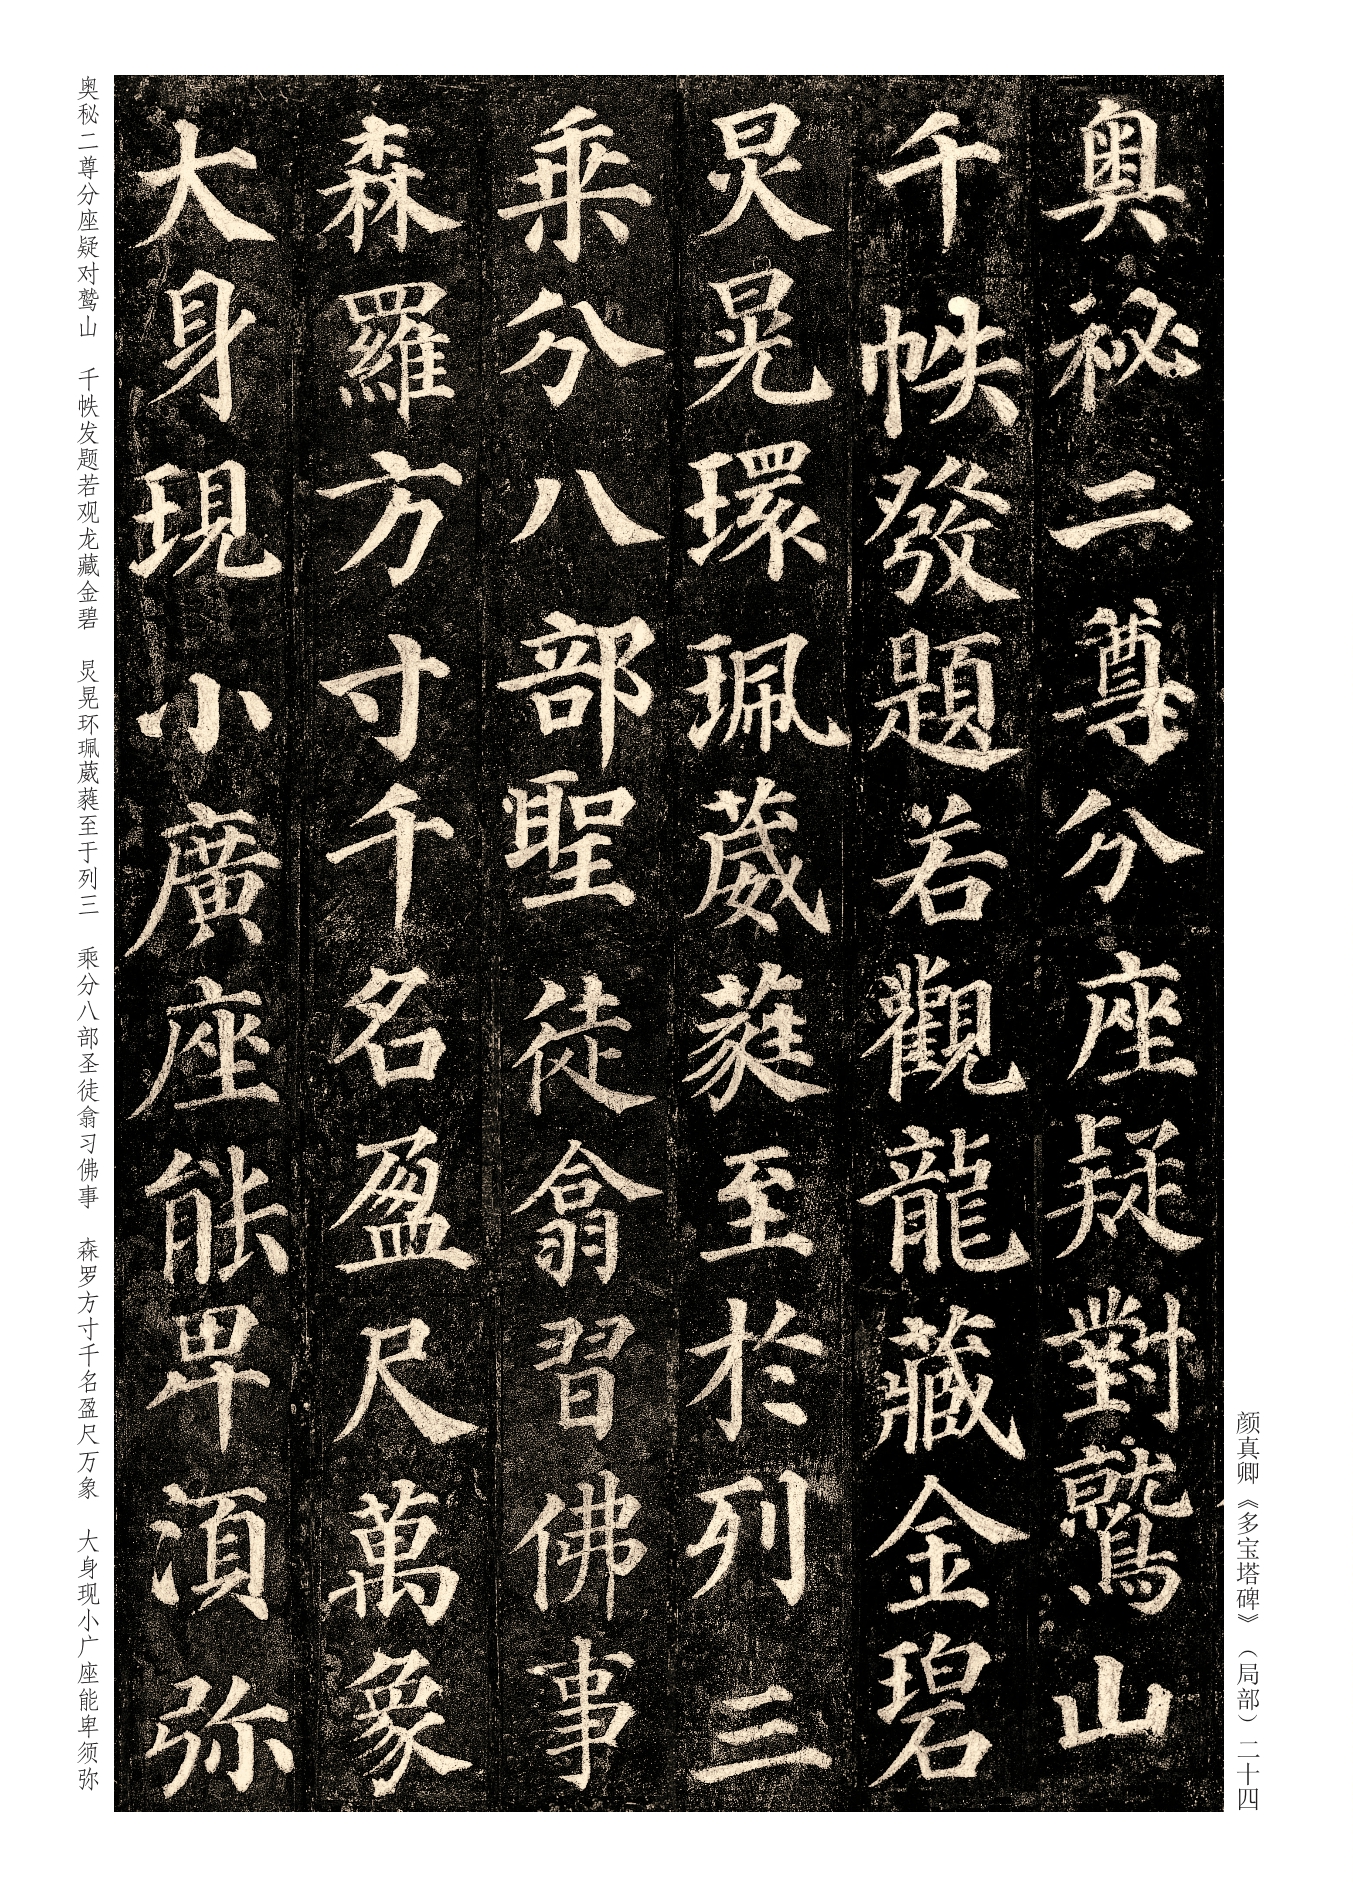 奥秘二尊分座疑對鷲山
千帙發題若觀龍藏金碧
炅晃環珮葳蕤至於列三
乘分八部聖徒翕習佛事
森羅方寸千名盈尺萬象
大身現小廣座能卑湏弥
颜真卿《多宝塔碑》（局部）二十四
奥秘二尊分座疑对鹫山 千帙发题若观龙藏金碧 炅晃环珮葳蕤至于列三 乘分八部圣徒翕习佛事 森罗方寸千名盈尺万象 大身现小广座能卑须弥